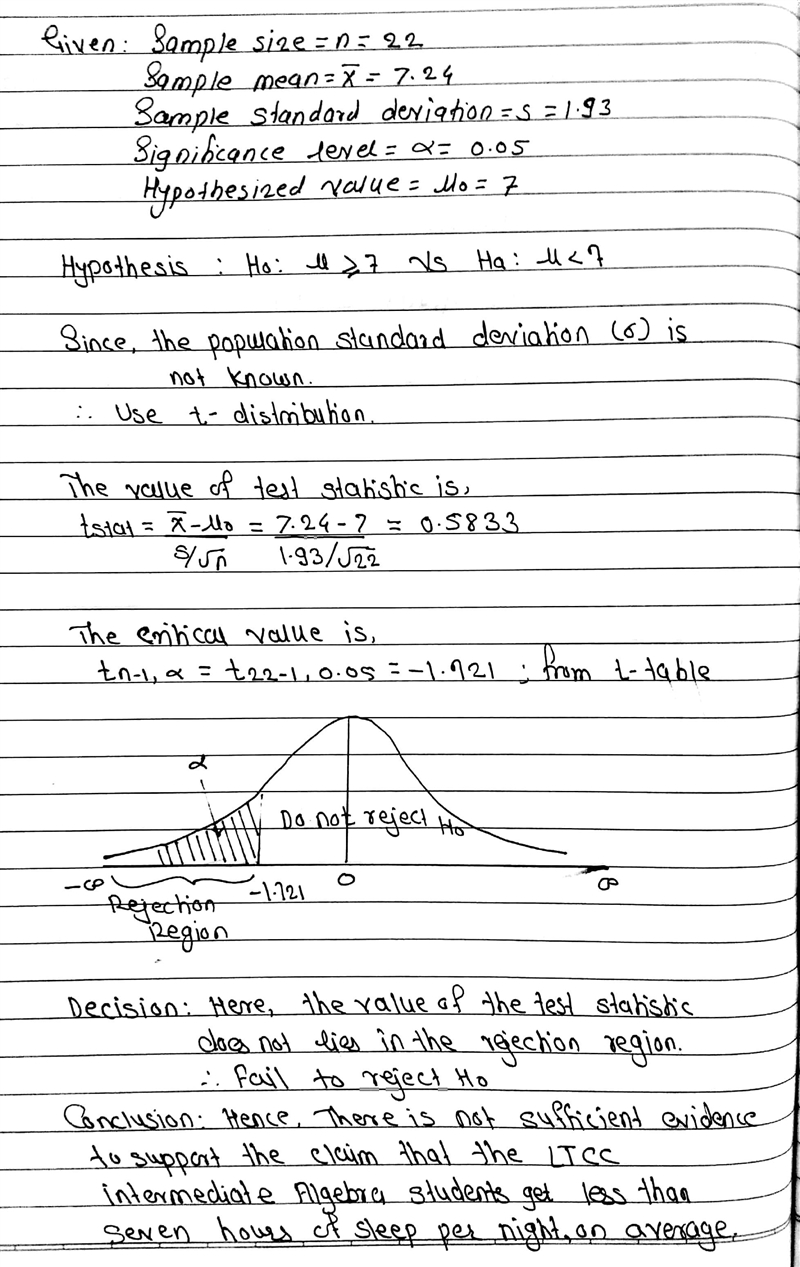 Given: Sample size = n = 22
Sample mean = x̄ = 7.24
Sample standard deviation = s = 1.93
Significance level = α = 0.05
Hypothesized value = μ0 = 7
Hypothesis : H0: μ ⩾ 7 Vs Ha: μ < 7
Since, the population standard deviation (σ) is
not known.
∴ Use t-distribution.
The value of test statistic is,
tstat = x̄ - μ0 / s/√n = 7.24 - 7 / 1.93/√22 = 0.5833
The critical value is,
tn-1, α = t22-1, 0.05 = -1.721 ; from t-table
α
Do not reject H0
-∞ -1.721 0 ∞
Rejection
Region
Decision: Here, the value of the test statistic
does not lies in the rejection region.
∴ Fail to reject H0
Conclusion: Hence, There is not sufficient evidence
to support the claim that the LTCC
intermediate Algebra students get less than
seven hours of sleep per night, on average.